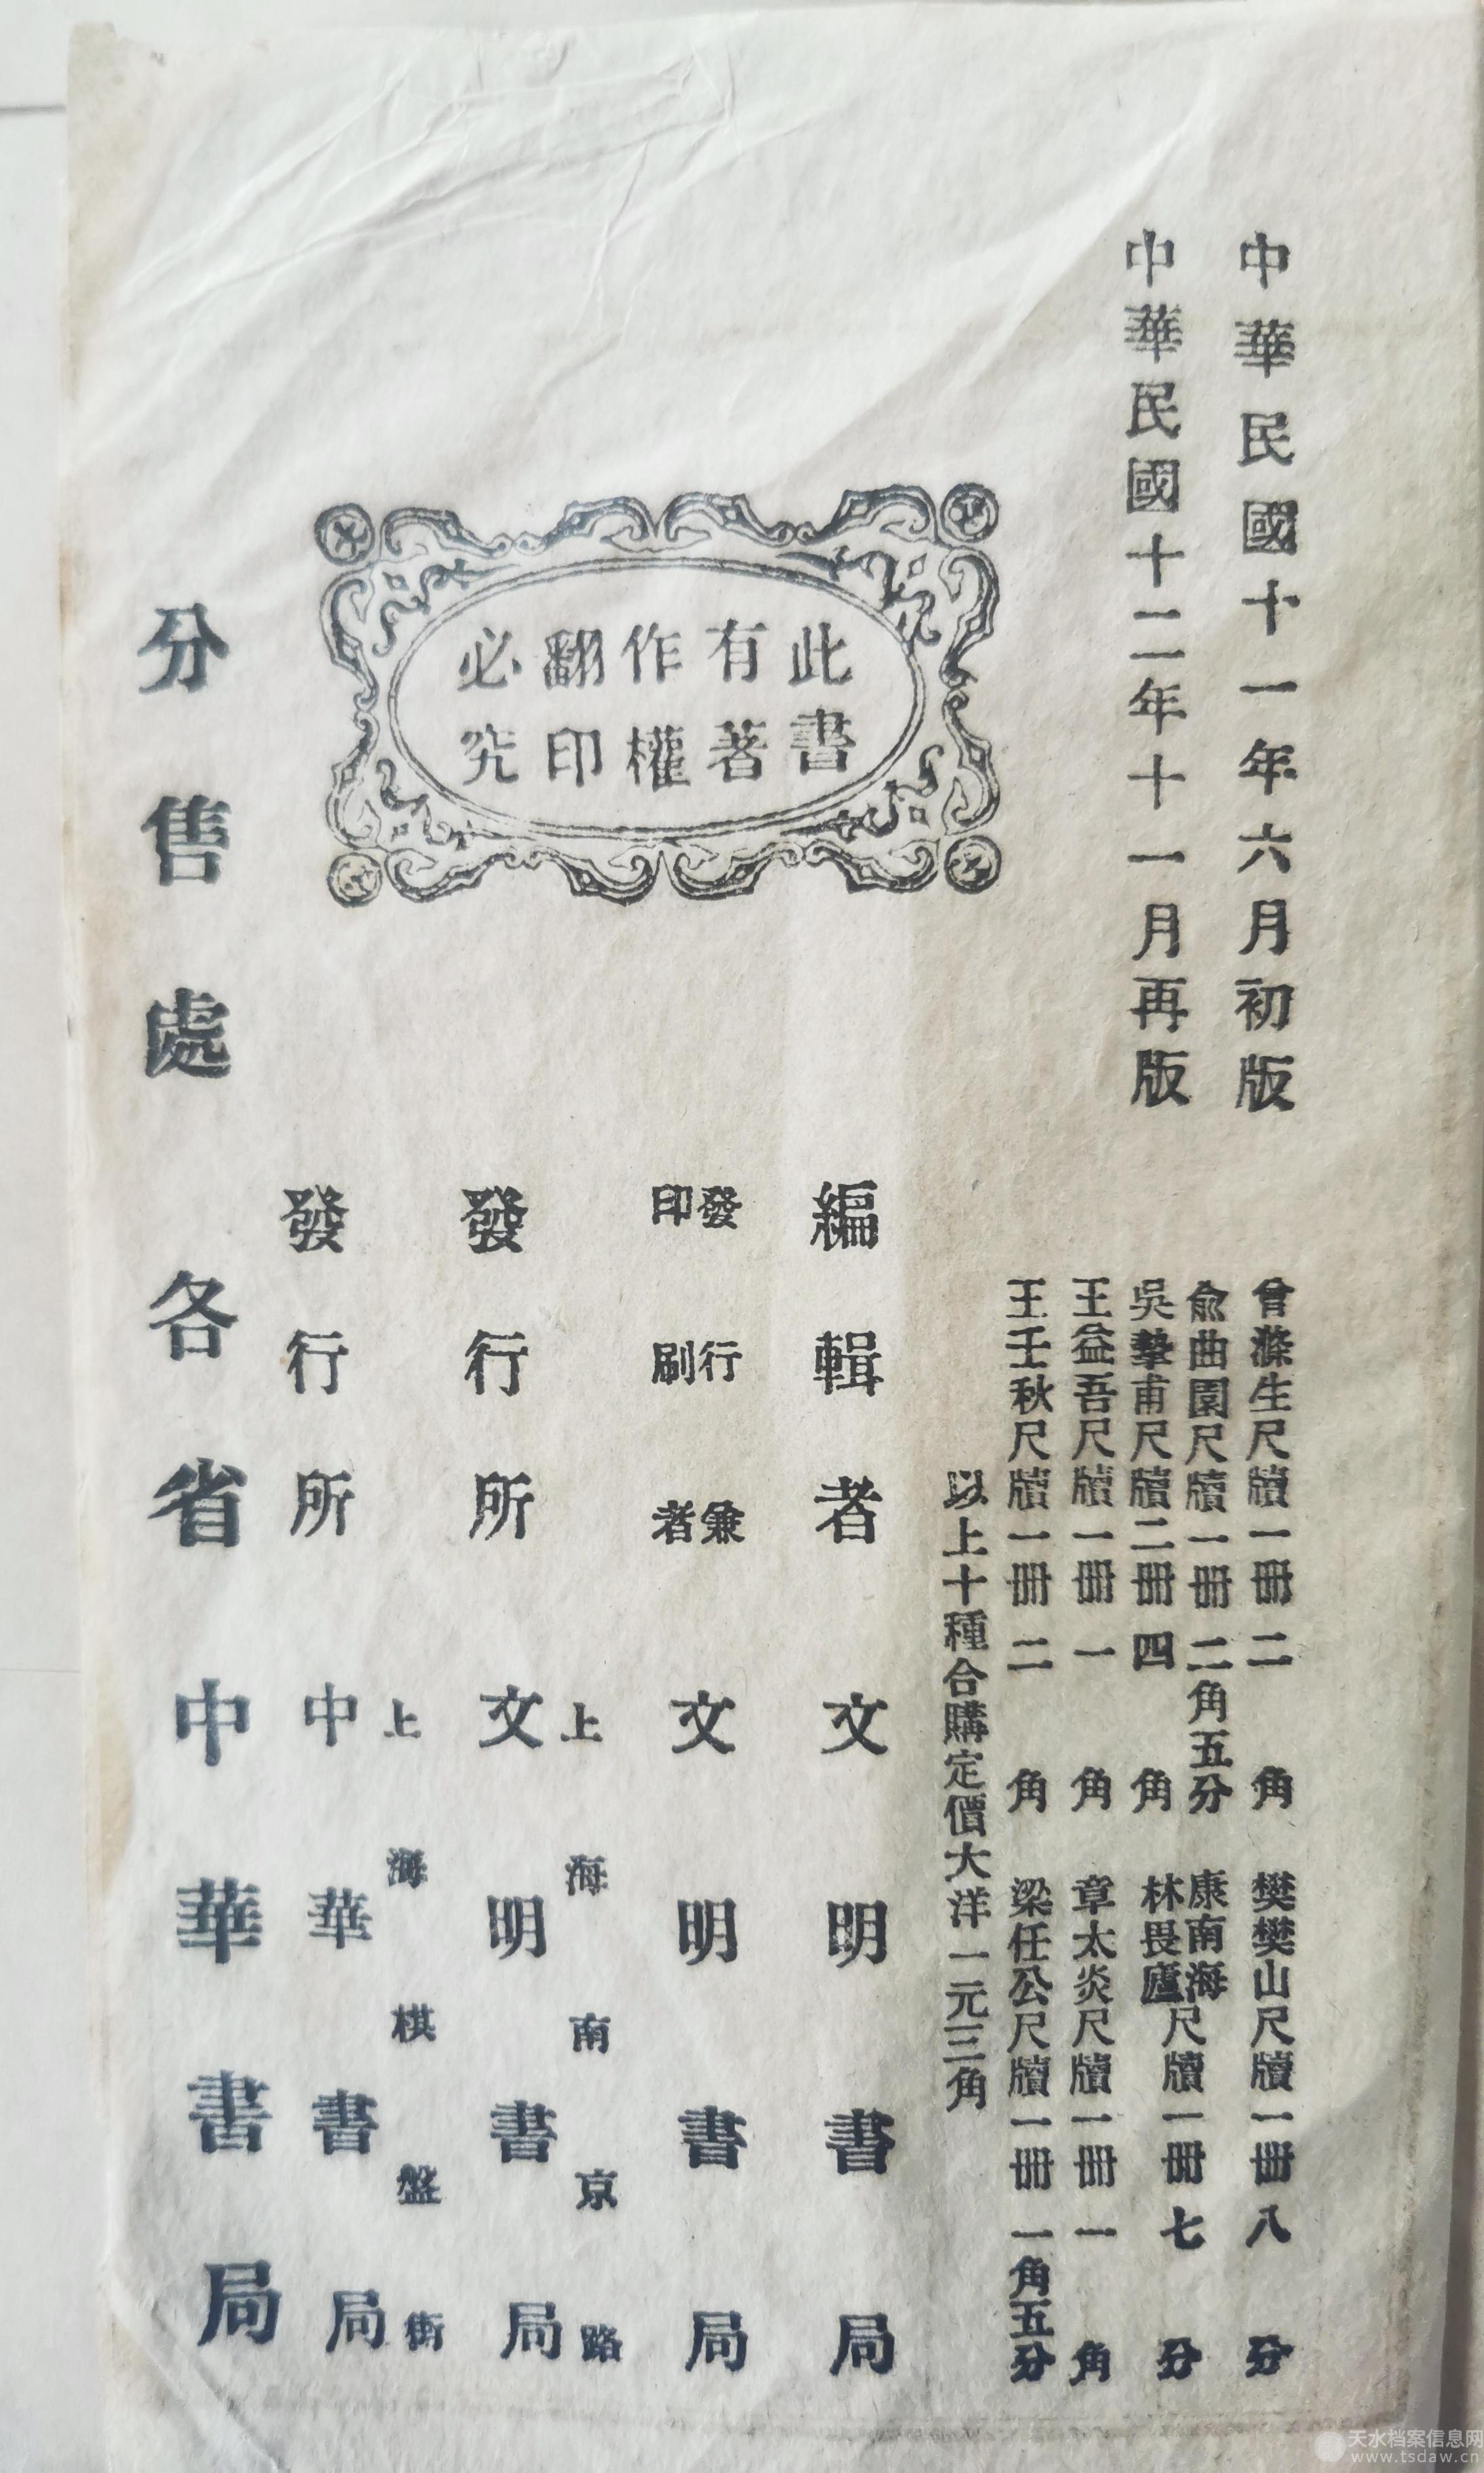 中華民國十一年六月初版
中華民國十二年十一月再版
曾滌生尺牘一冊二角
樊樊山尺牘一冊八分
俞曲園尺牘一冊二角五分
康南海
林畏廬
尺牘一冊七分
吳摯甫尺牘二冊四角
王益吾尺牘一冊一角
章太炎尺牘一冊一角
王壬秋尺牘一冊二角
梁任公尺牘一冊一角五分
以上十種合購定價大洋一元三角
此書
有著
作權
翻印
必究
編輯者 文明書局
發行兼
印刷者
文明書局
上海南京路
發行所 文明書局
上海棋盤街
發行所 中華書局
分售處 各省中華書局
天水档案信息网
www.tsdaw.cn